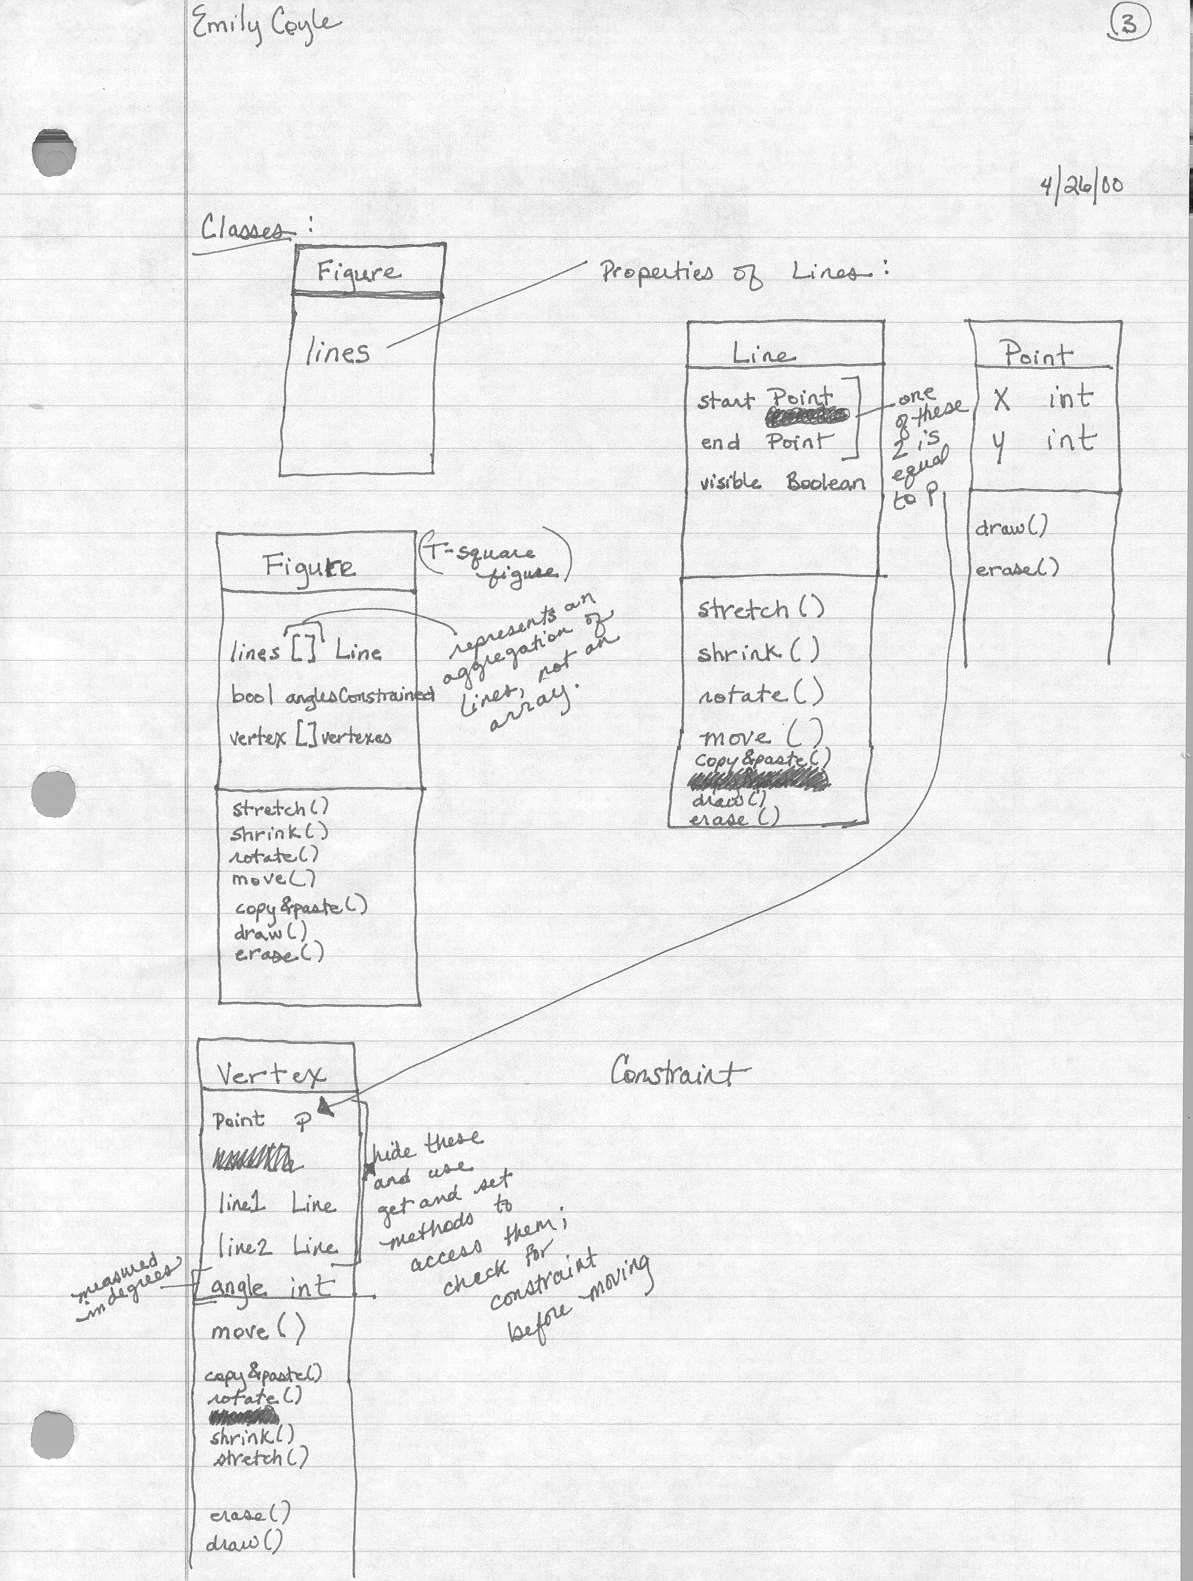 Emily Coyle
3
4/26/00
Classes:
Figure
lines
Properties of Lines:
Line
start Point
end Point
visible Boolean
one
of these
2 is
equal
to P
stretch()
shrink()
rotate()
move()
copy&paste()
draw()
erase()
Point
X int
y int
draw()
erase()
Figure
(T-square
figure)
lines [] Line
bool anglesConstrained
vertex [] vertexes
represents an
aggregation of
lines, not an
array.
stretch()
shrink()
rotate()
move()
copy&paste()
draw()
erase()
Vertex
Point P
line1 Line
line2 Line
angle int
measured
in degrees
hide these
and use
get and set
methods to
access them;
check for
constraint
before moving
move()
copy&paste()
rotate()
shrink()
stretch()
erase()
draw()
Constraint